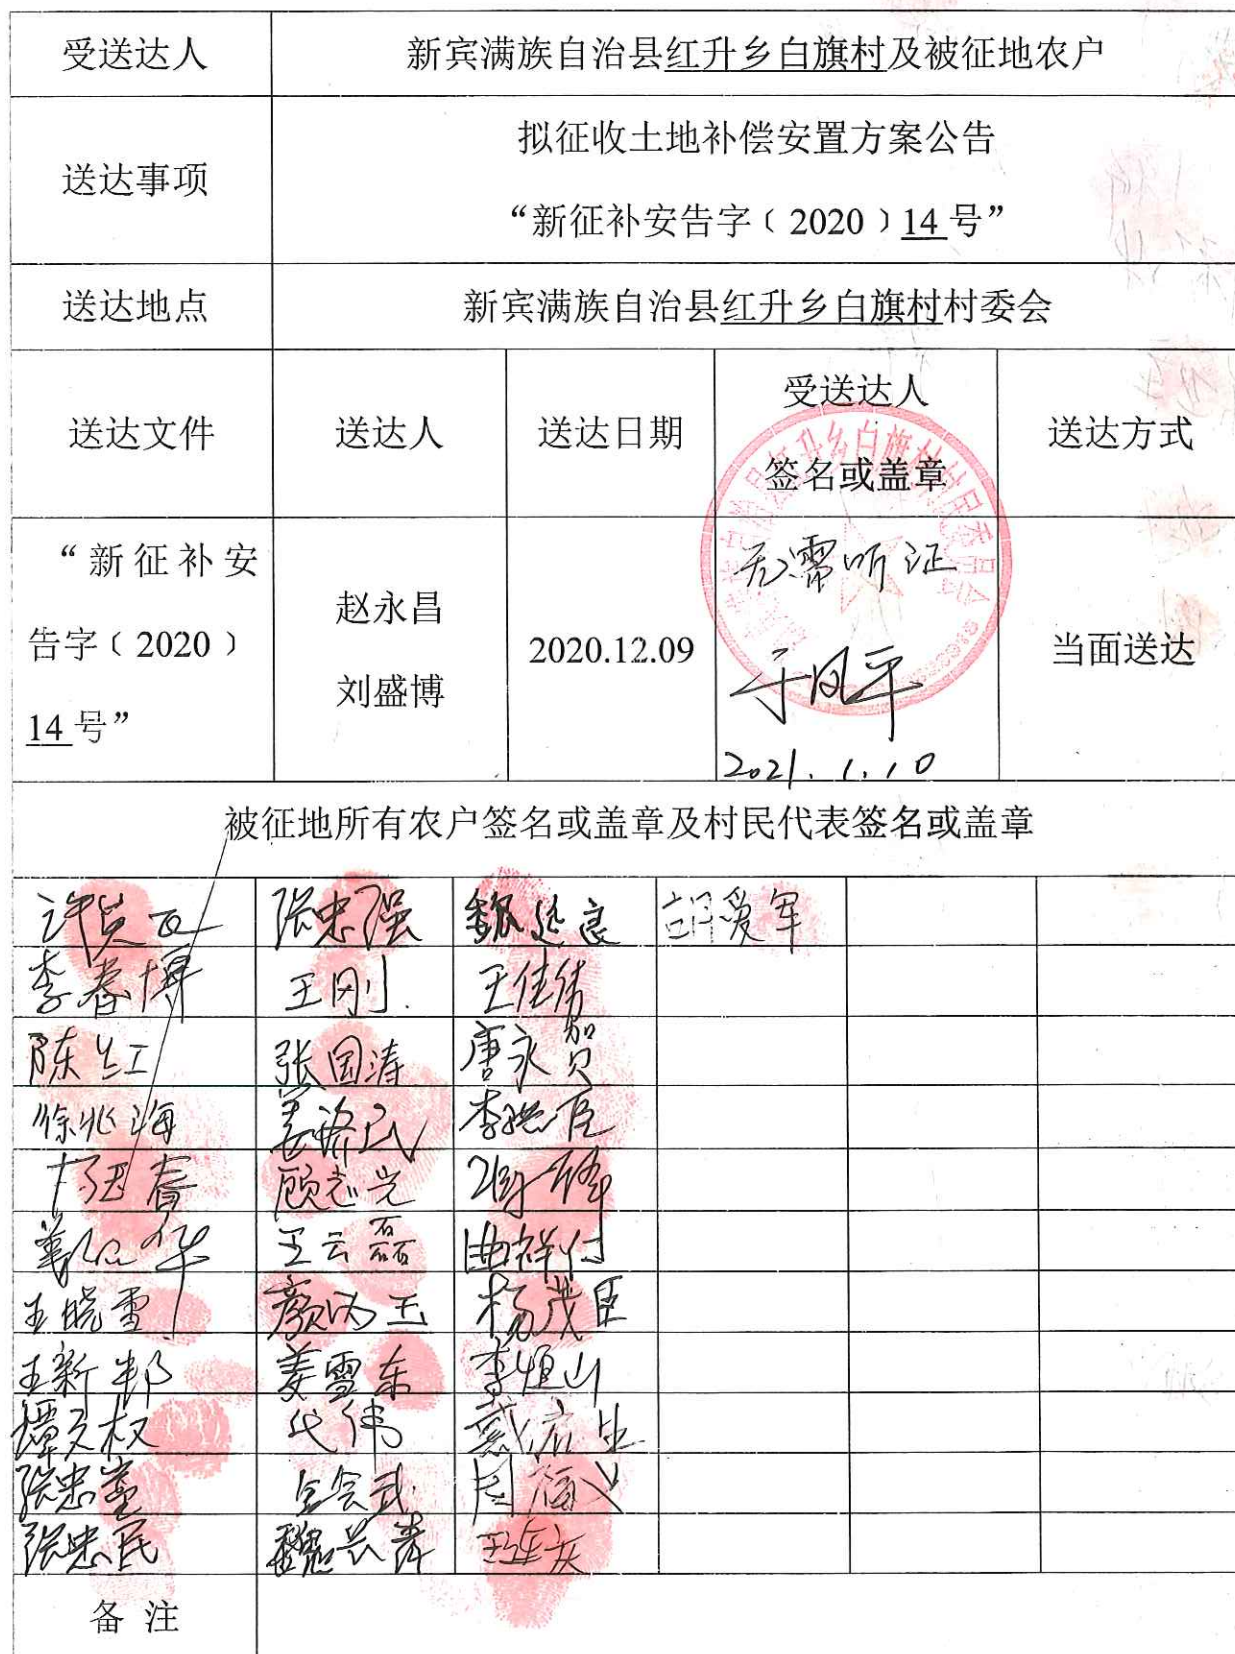 受送达人
新宾满族自治县红升乡白旗村及被征地农户
送达事项
拟征收土地补偿安置方案公告
“新征补安告字﹝2020﹞14号”
送达地点
新宾满族自治县红升乡白旗村村委会
送达文件
送达人
送达日期
受送达人
签名或盖章
送达方式
“新征补安
告字﹝2020﹞
14号”
赵永昌
刘盛博
2020.12.09
无需听证
于凤平
2021.1.10
当面送达
被征地所有农户签名或盖章及村民代表签名或盖章
张忠强
李春博
王刚
王佳伟
陈红
张国涛
唐永贺
徐兆海
顾志兴
王云磊
曲祥付
王晓雪
杨茂臣
王新邦
姜雪东
李恒山
谭文权
代伟
张忠民
备注